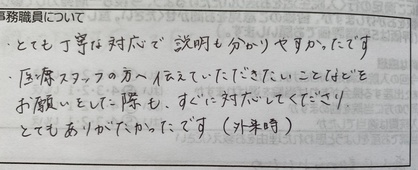 事務職員について
・とても丁寧な対応で 説明も分かりやすかったです
・医療スタッフの方へ伝えていただきたいことなどを
お願いをした際も、すぐに対応してくださり
とてもありがたかったです (外来時)